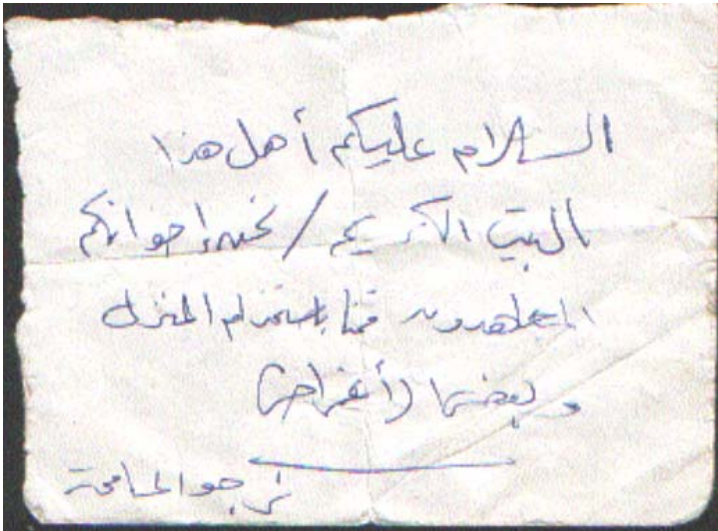 السلام عليكم أهل هذا
البيت الكريم / نحن إخوانكم
المجاهدون قمنا باستخدام المنزل
وبعض الأغراض
نرجو المسامحة